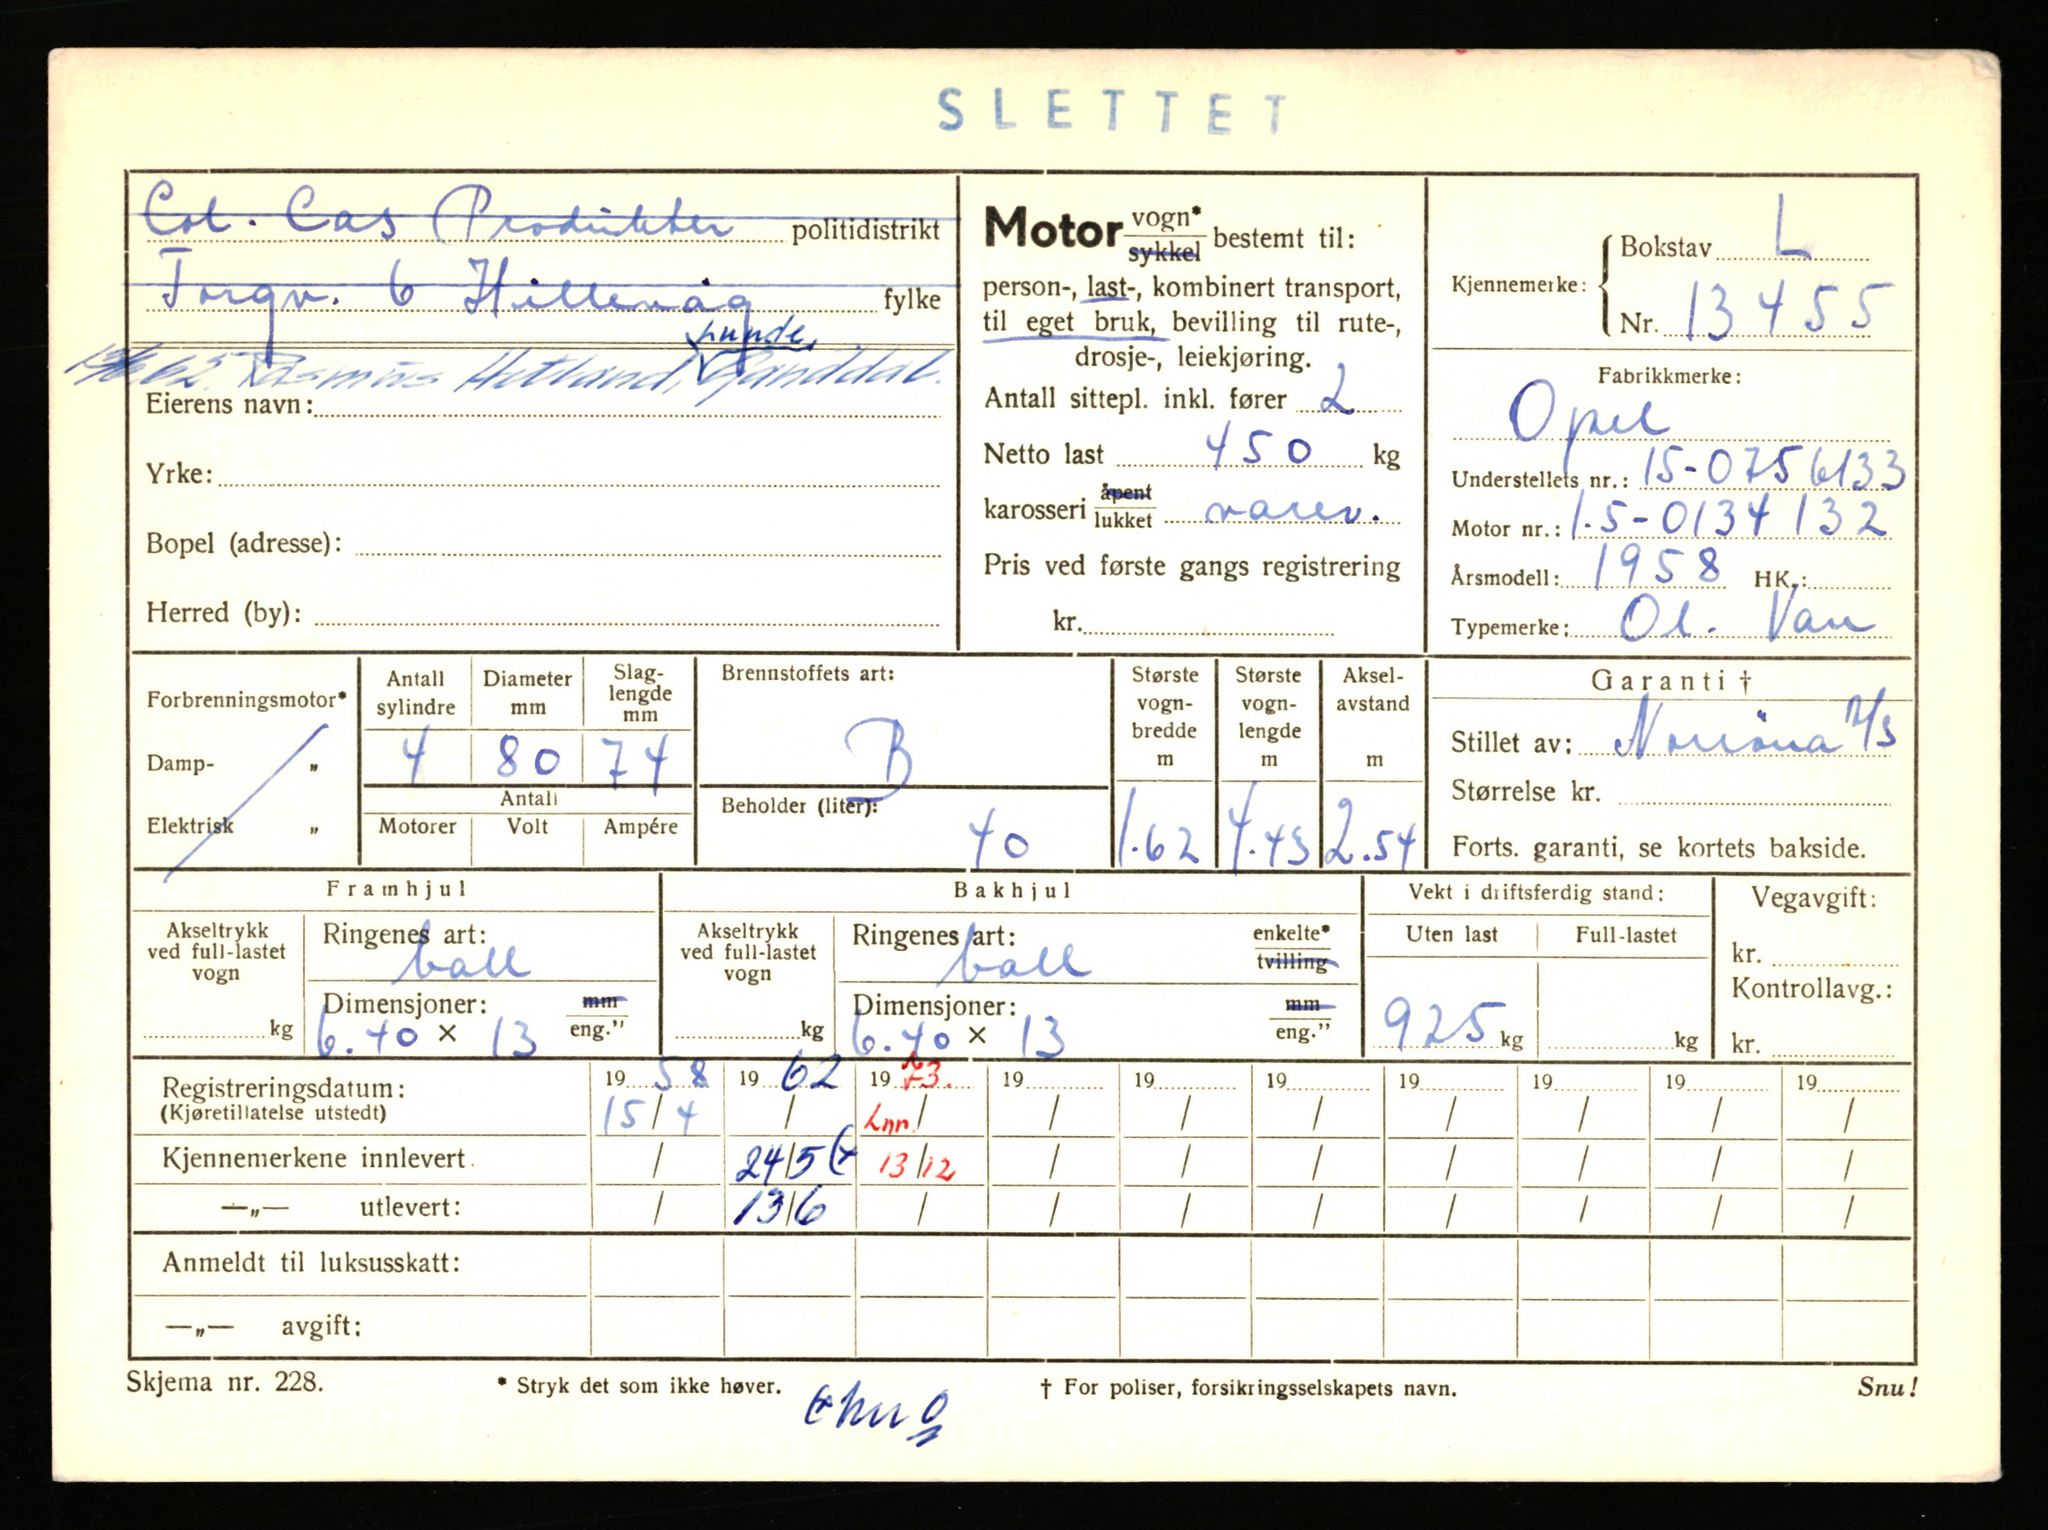 SLETTET
Col. Cas Produkter politidistrikt
Torgv. 6 Hillevåg fylke
62. Rasmus Hetland, Ganddal.
Eierens navn:
Yrke:
Bopel (adresse):
Herred (by):
Motor vogn* sykkel bestemt til:
person-, last-, kombinert transport,
til eget bruk, bevilling til rute-,
drosje-, leiekjøring.
Antall sittepl. inkl. fører 2
Netto last 450 kg
karosseri åpent lukket varev.
Pris ved første gangs registrering
kr.
Kjennemerke: Bokstav L
Nr. 13455
Fabrikkmerke:
Opel
Understellets nr.: 15-0756133
Motor nr.: 1.5-0134132
Årsmodell: 1958 HK.:
Typemerke: Ol. Van
Forbrenningsmotor*
Damp- "
Elektrisk "
Antall sylindre Diameter mm Slag-lengde mm
4 80 74
Antall
Motorer Volt Ampére
Brennstoffets art:
B
Beholder (liter):
40
Største vogn-bredde m
1.62
Største vogn-lengde m
4.43
Aksel-avstand m
2.54
Garanti †
Stillet av: Norröna A/S
Størrelse kr.
Forts. garanti, se kortets bakside.
Framhjul
Akseltrykk ved full-lastet vogn
kg
Ringenes art:
ball
Dimensjoner: mm eng."
6.40 × 13
Bakhjul
Akseltrykk ved full-lastet vogn
kg
Ringenes art: enkelte* tvilling
ball
Dimensjoner: mm eng."
6.40 × 13
Vekt i driftsferdig stand:
Uten last Full-lastet
925 kg kg
Vegavgift:
kr.
Kontrollavg.:
kr.
Registreringsdatum: 19 58 19 62 19 73. 19 19 19 19 19 19 19
(Kjøretillatelse utstedt) 15/4 / Lnr. / / / / / / / /
Kjennemerkene innlevert. / 24/5 13/12 / / / / / / /
—"— utlevert: / 13/6 / / / / / / / /
Anmeldt til luksusskatt:
—"— avgift:
Skjema nr. 228. * Stryk det som ikke høver. † For poliser, forsikringsselskapets navn. Snu!